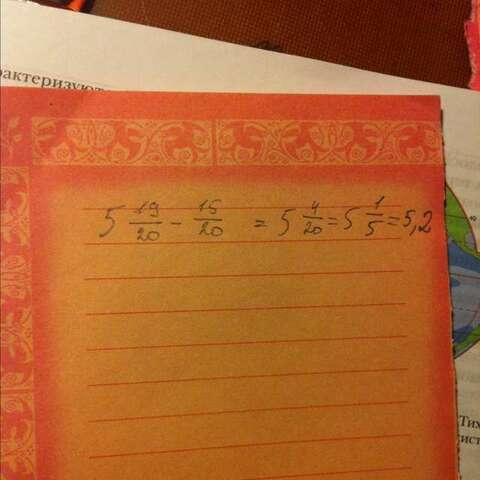 рактеризуют
5 19/20 - 15/20 = 5 4/20 = 5 1/5 = 5,2
Тих